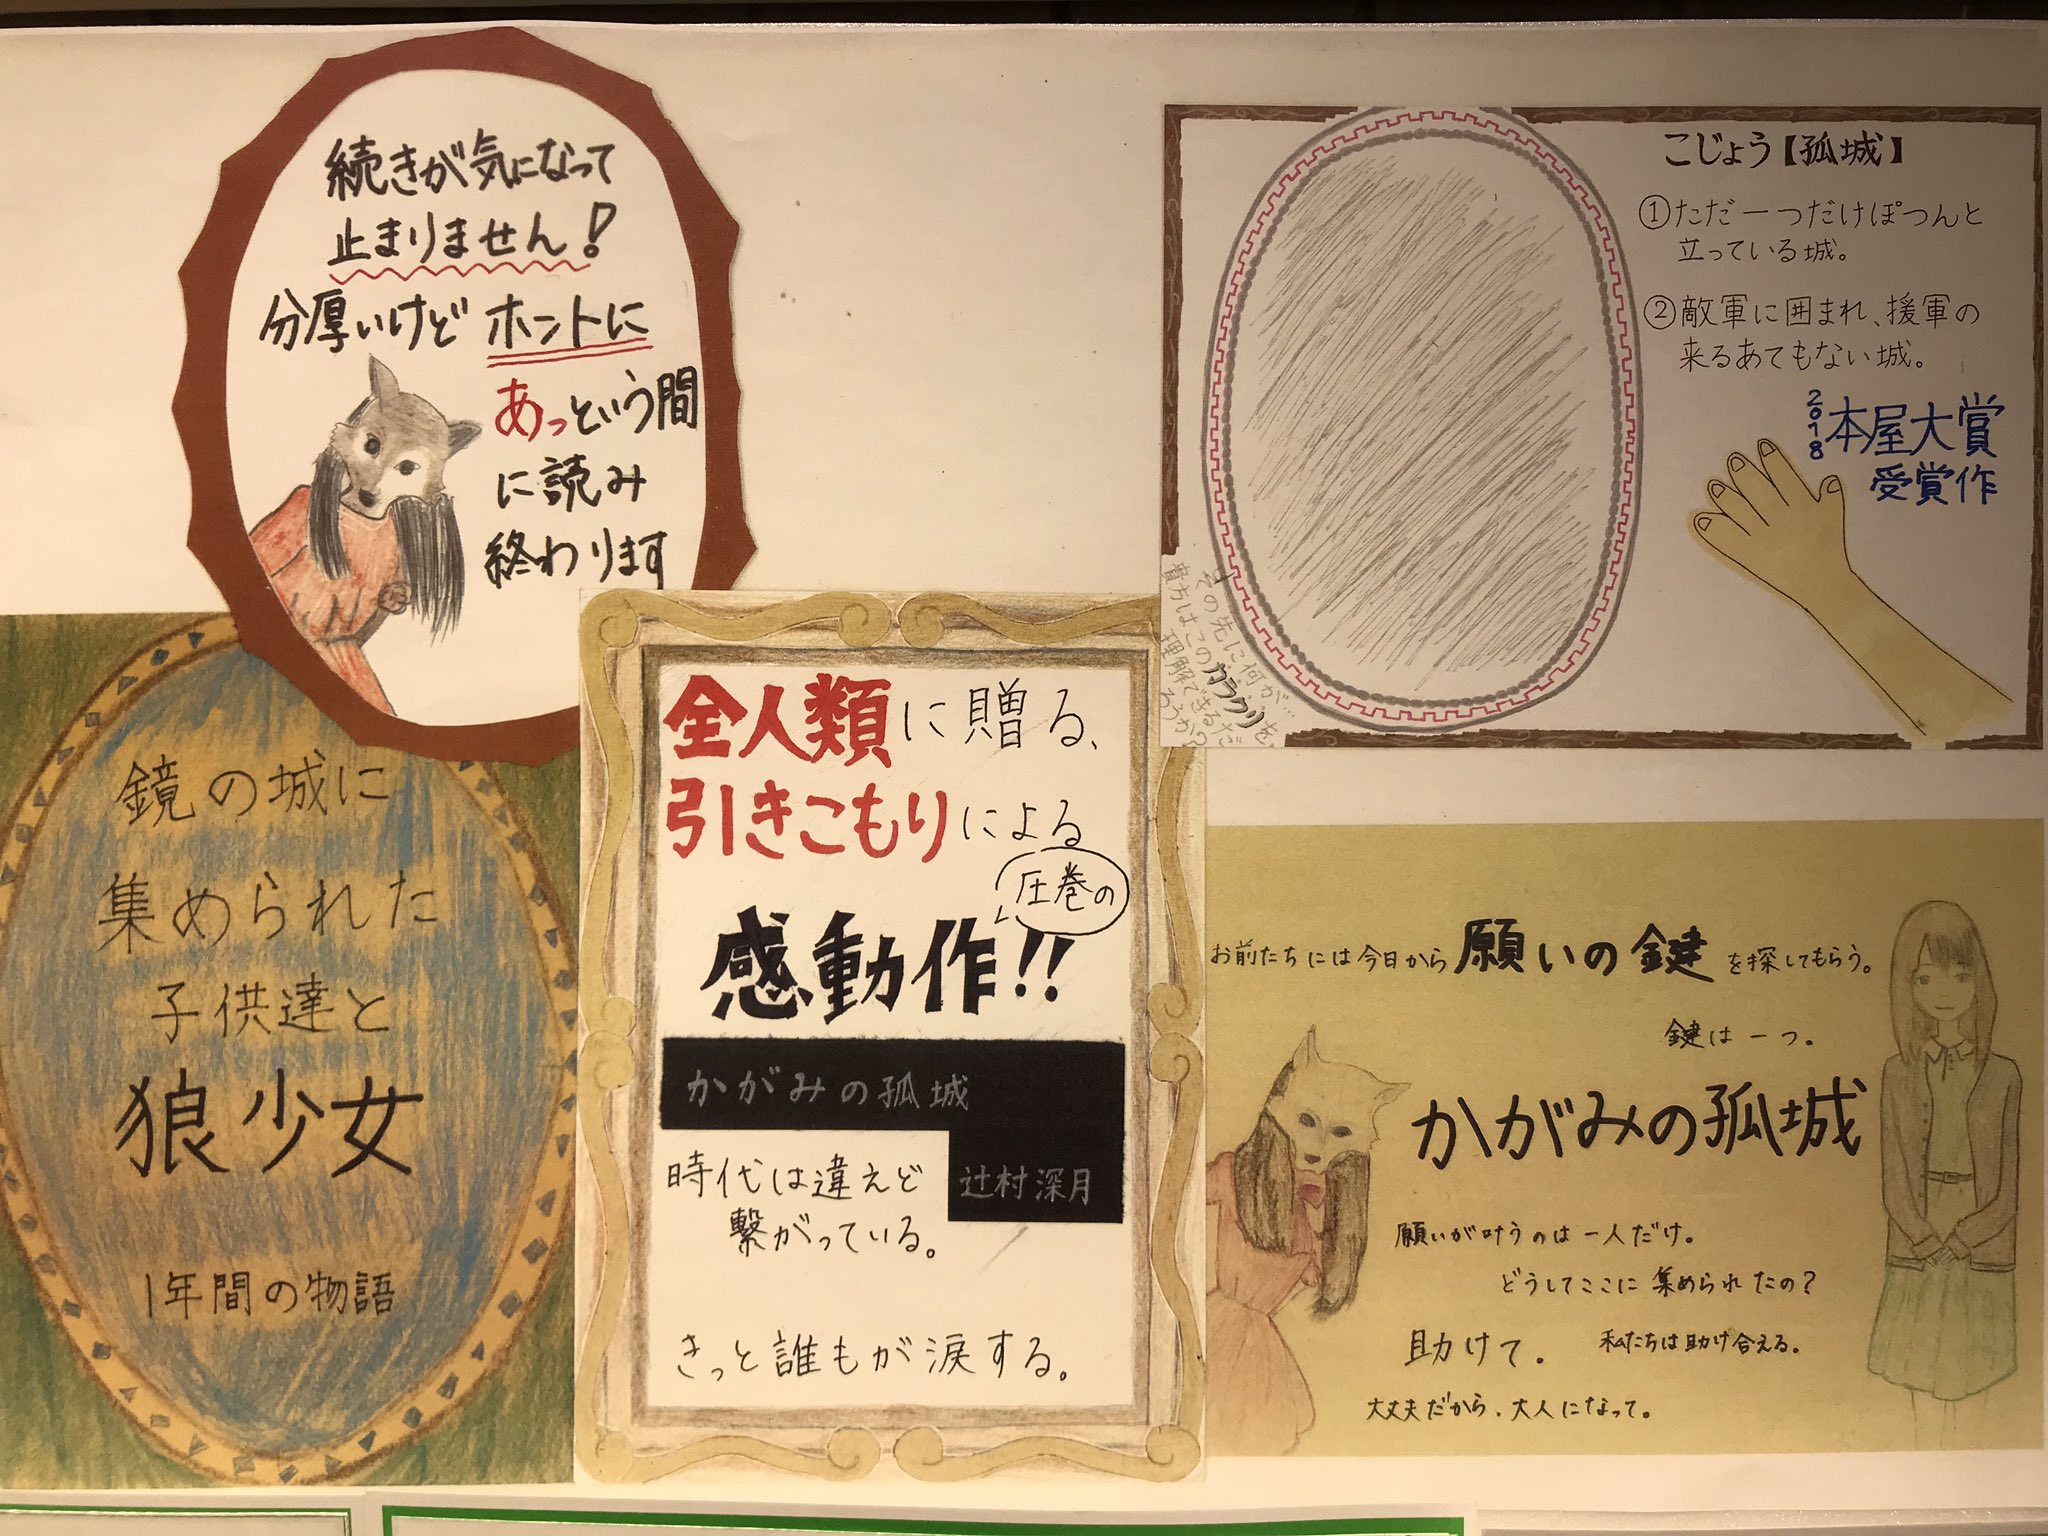 続きが気になって
止まりません!
分厚いけど ホントに
あっという間
に読み
終わります
こじょう【孤城】
①ただ一つだけぽつんと
立っている城。
②敵軍に囲まれ、援軍の
来るあてもない城。
2018
本屋大賞
受賞作
その先に何が…
貴方はこのカラクリを
理解できるだ
ろうか?
鏡の城に
集められた
子供達と
狼少女
1年間の物語
全人類に贈る、
引きこもりによる
圧巻の
感動作!!
かがみの孤城
辻村深月
時代は違えど
繋がっている。
きっと誰もが涙する。
お前たちには今日から願いの鍵を探してもらう。
鍵は一つ。
かがみの孤城
願いが叶うのは一人だけ。
どうしてここに集められたの?
助けて。 私たちは助け合える。
大丈夫だから、大人になって。